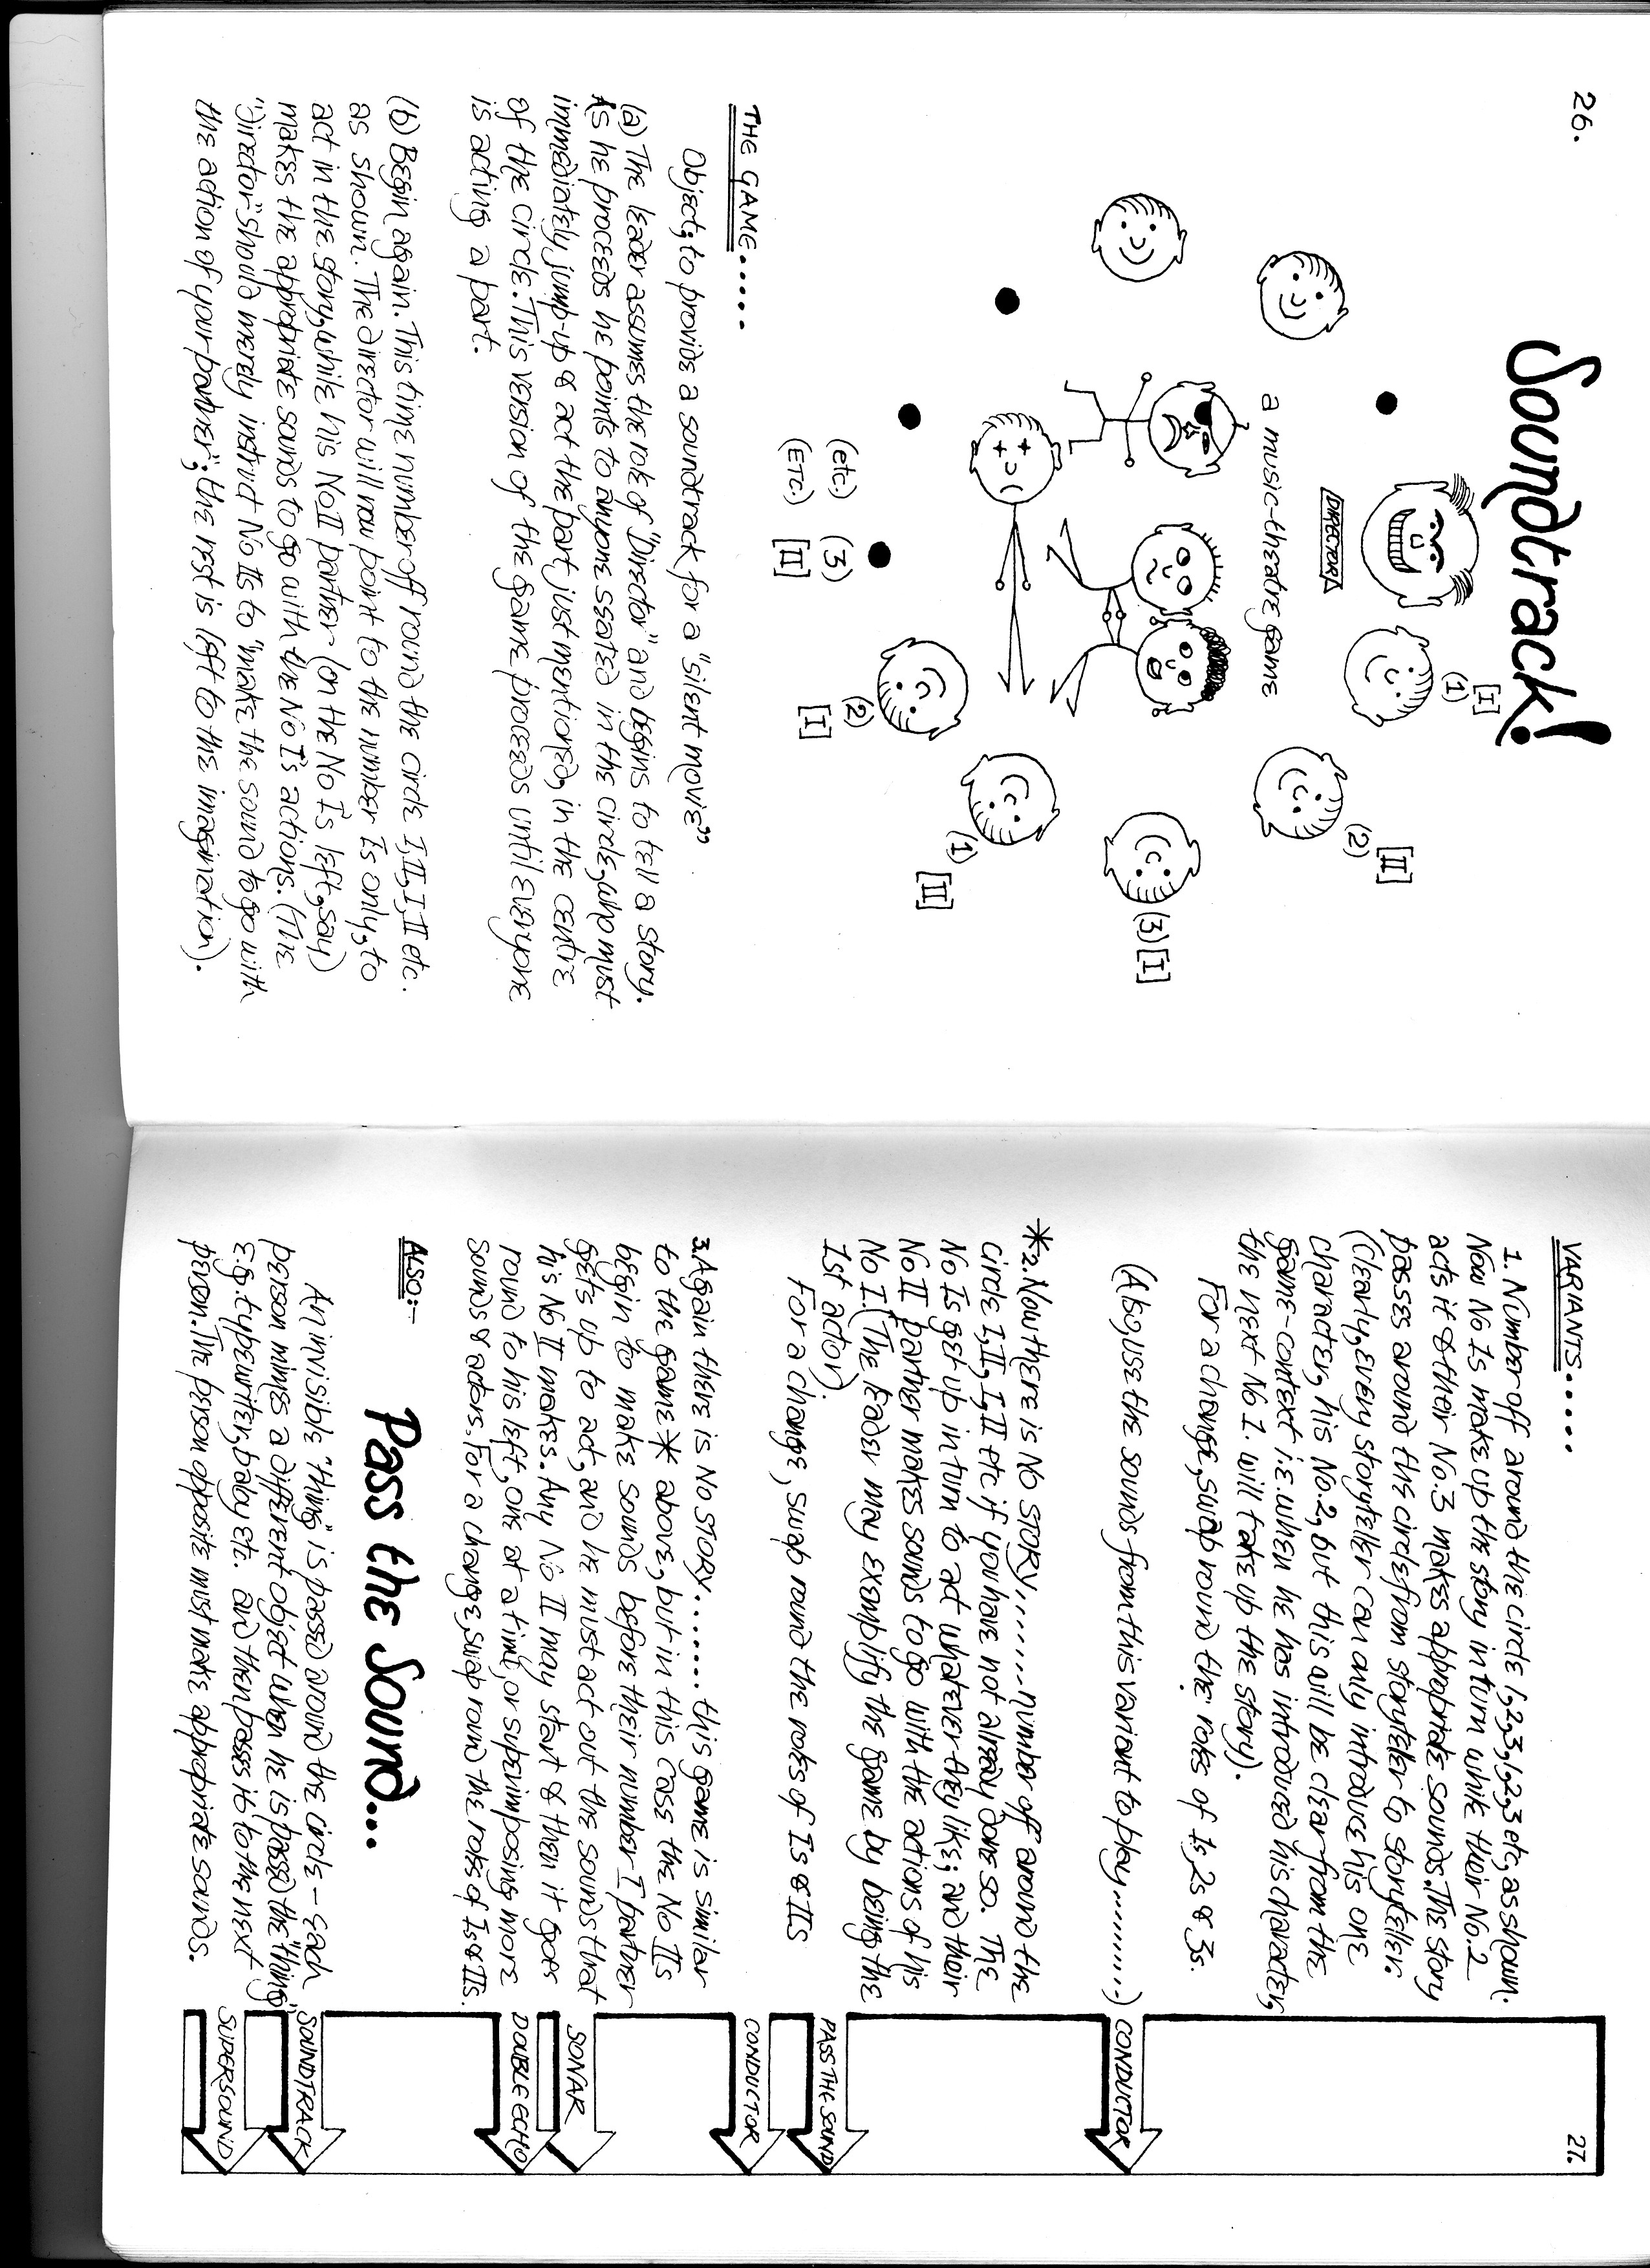 26.
Soundtrack!
a music-theatre game
DIRECTOR
[I]
(1)
[II]
(2)
(3) [I]
(1)
[II]
(2)
[I]
(etc.) (3)
(ETC.) [II]
THE GAME.....
Object; to provide a soundtrack for a "silent movie"
(a) The leader assumes the role of "Director" and begins to tell a story.
As he proceeds he points to anyone seated in the circle, who must
immediately jump-up & act the part just mentioned, in the centre
of the circle. This version of the game proceeds until everyone
is acting a part.
(b) Begin again. This time number off round the circle I, II, I, II etc.
as shown. The director will now point to the number Is only, to
act in the story, while his No II partner (on the No I's left, say)
makes the appropriate sounds to go with the No I's actions. (The
"Director" should merely instruct No IIs to "make the sound to go with
the action of your partner"; the rest is left to the imagination).
27.
VARIANTS.....
1. Number off around the circle 1,2,3,1,2,3 etc, as shown.
Now No 1s make up the story in turn while their No.2
acts it & their No.3 makes appropriate sounds. The story
passes around the circle from storyteller to storyteller.
(Clearly, every storyteller can only introduce his one
character, his No.2, but this will be clear from the
game-context i.e. when he has introduced his character,
the next No 1. will take up the story).
For a change, swap round the roles of 1s, 2s & 3s.
(Also, use the sounds from this variant to play..........)
*2. Now there is NO STORY.........number off around the
circle I, II, I, II etc if you have not already done so. The
No Is get up in turn to act whatever they like; and their
No II partner makes sounds to go with the actions of his
No I. (The leader may exemplify the game by being the
1st actor).
For a change, swap round the roles of Is & IIs
3. Again there is NO STORY....... this game is similar
to the game * above, but in this case the No IIs
begin to make sounds before their number-I partner
gets up to act, and he must act out the sounds that
his No II makes. Any No II may start & then it goes
round to his left, one at a time, or superimposing more
sounds & actors. For a change, swap round the roles of Is & IIs.
ALSO:-
Pass the Sound...
An invisible "thing" is passed around the circle - each
person mimes a different object when he is passed the "thing"
e.g. typewriter, baby etc. and then passes it to the next
person. The person opposite must make appropriate sounds.
CONDUCTOR
PASS THE SOUND
CONDUCTOR
SONAR
DOUBLE ECHO
SOUNDTRACK
SUPERSOUND